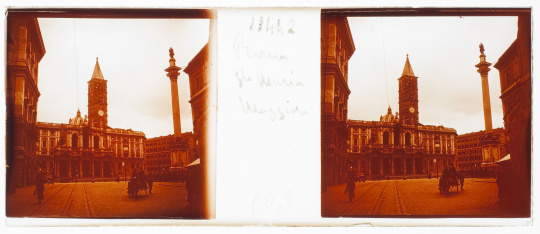 11442
Roma
Sta Maria
Maggiore